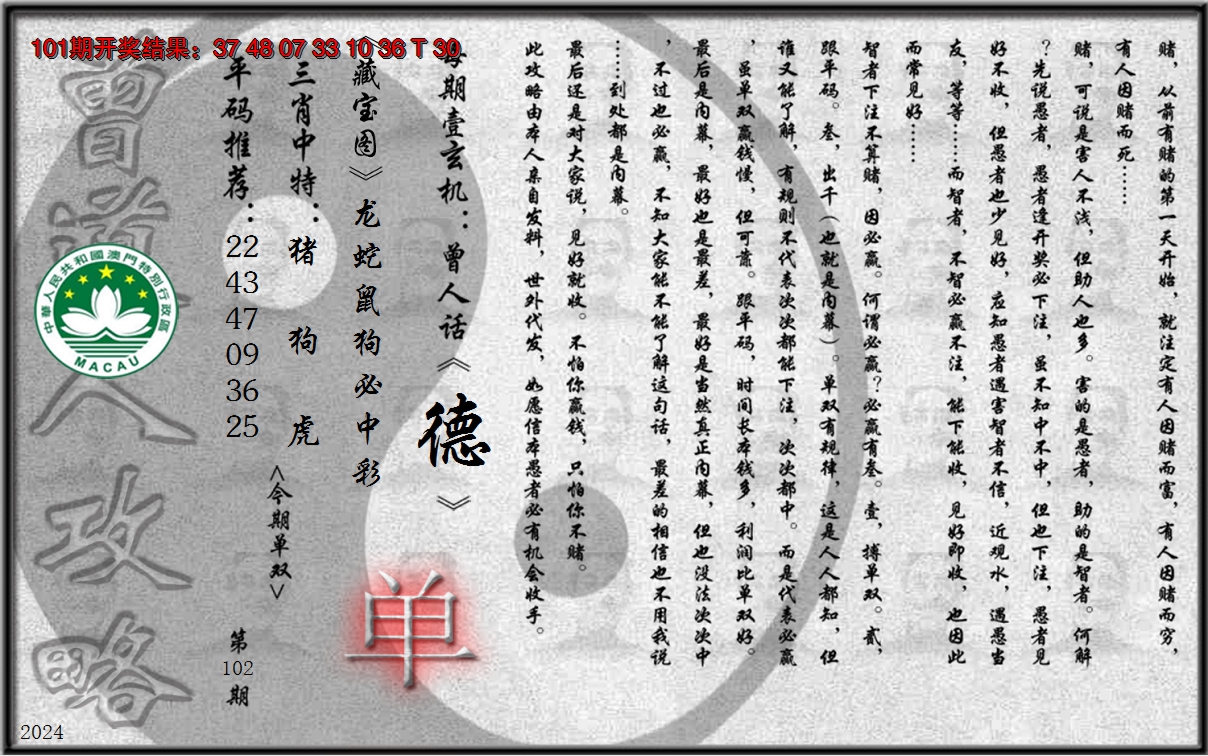 101期开奖结果：37 48 07 33 10 36 T 30
赌，从前有赌的第一天开始，就注定有人因赌而富，有人因赌而穷，
有人因赌而死……
赌，可说是害人不浅，但助人也多。害的是愚者，助的是智者。何解
？先说愚者，愚者逢开奖必下注，虽不知中不中，但也下注，愚者见
好不收，但愚者也少见好，应知愚者遇害智者不信，近观水，遇愚当
友，等等……而智者，不智必赢不注，能下能收，见好即收，也因此
而常见好……
智者下注不算赌，因必赢。何谓必赢？必赢有叁。壹，搏单双。贰，
跟平码。叁，出千（也就是内幕）。单双有规律，这是人人都知，但
谁又能了解，有规则不代表次次都能下注，次次都中。而是代表必赢
，虽单双赢钱慢，但可靠。跟平码，时间长本钱多，利润比单双好。
最后是内幕，最好也是最差，最好是当然真正内幕，但也没法次次中
，不过也必赢，不知大家能不能了解这句话，最差的相信也不用我说
……到处都是内幕。
最后还是对大家说，见好就收。不怕你赢钱，只怕你不赌。
此攻略由本人亲自发料，世外代发，如愿信本愚者必有机会收手。
每期壹玄机：曾人话《德》
《藏宝图》龙蛇鼠狗必中彩
三肖中特：猪 狗 虎
<今期单双>
单
平码推荐：22 43 47 09 36 25
第102期
曾道人攻略
中華人民共和國澳門特別行政區
MACAU
2024